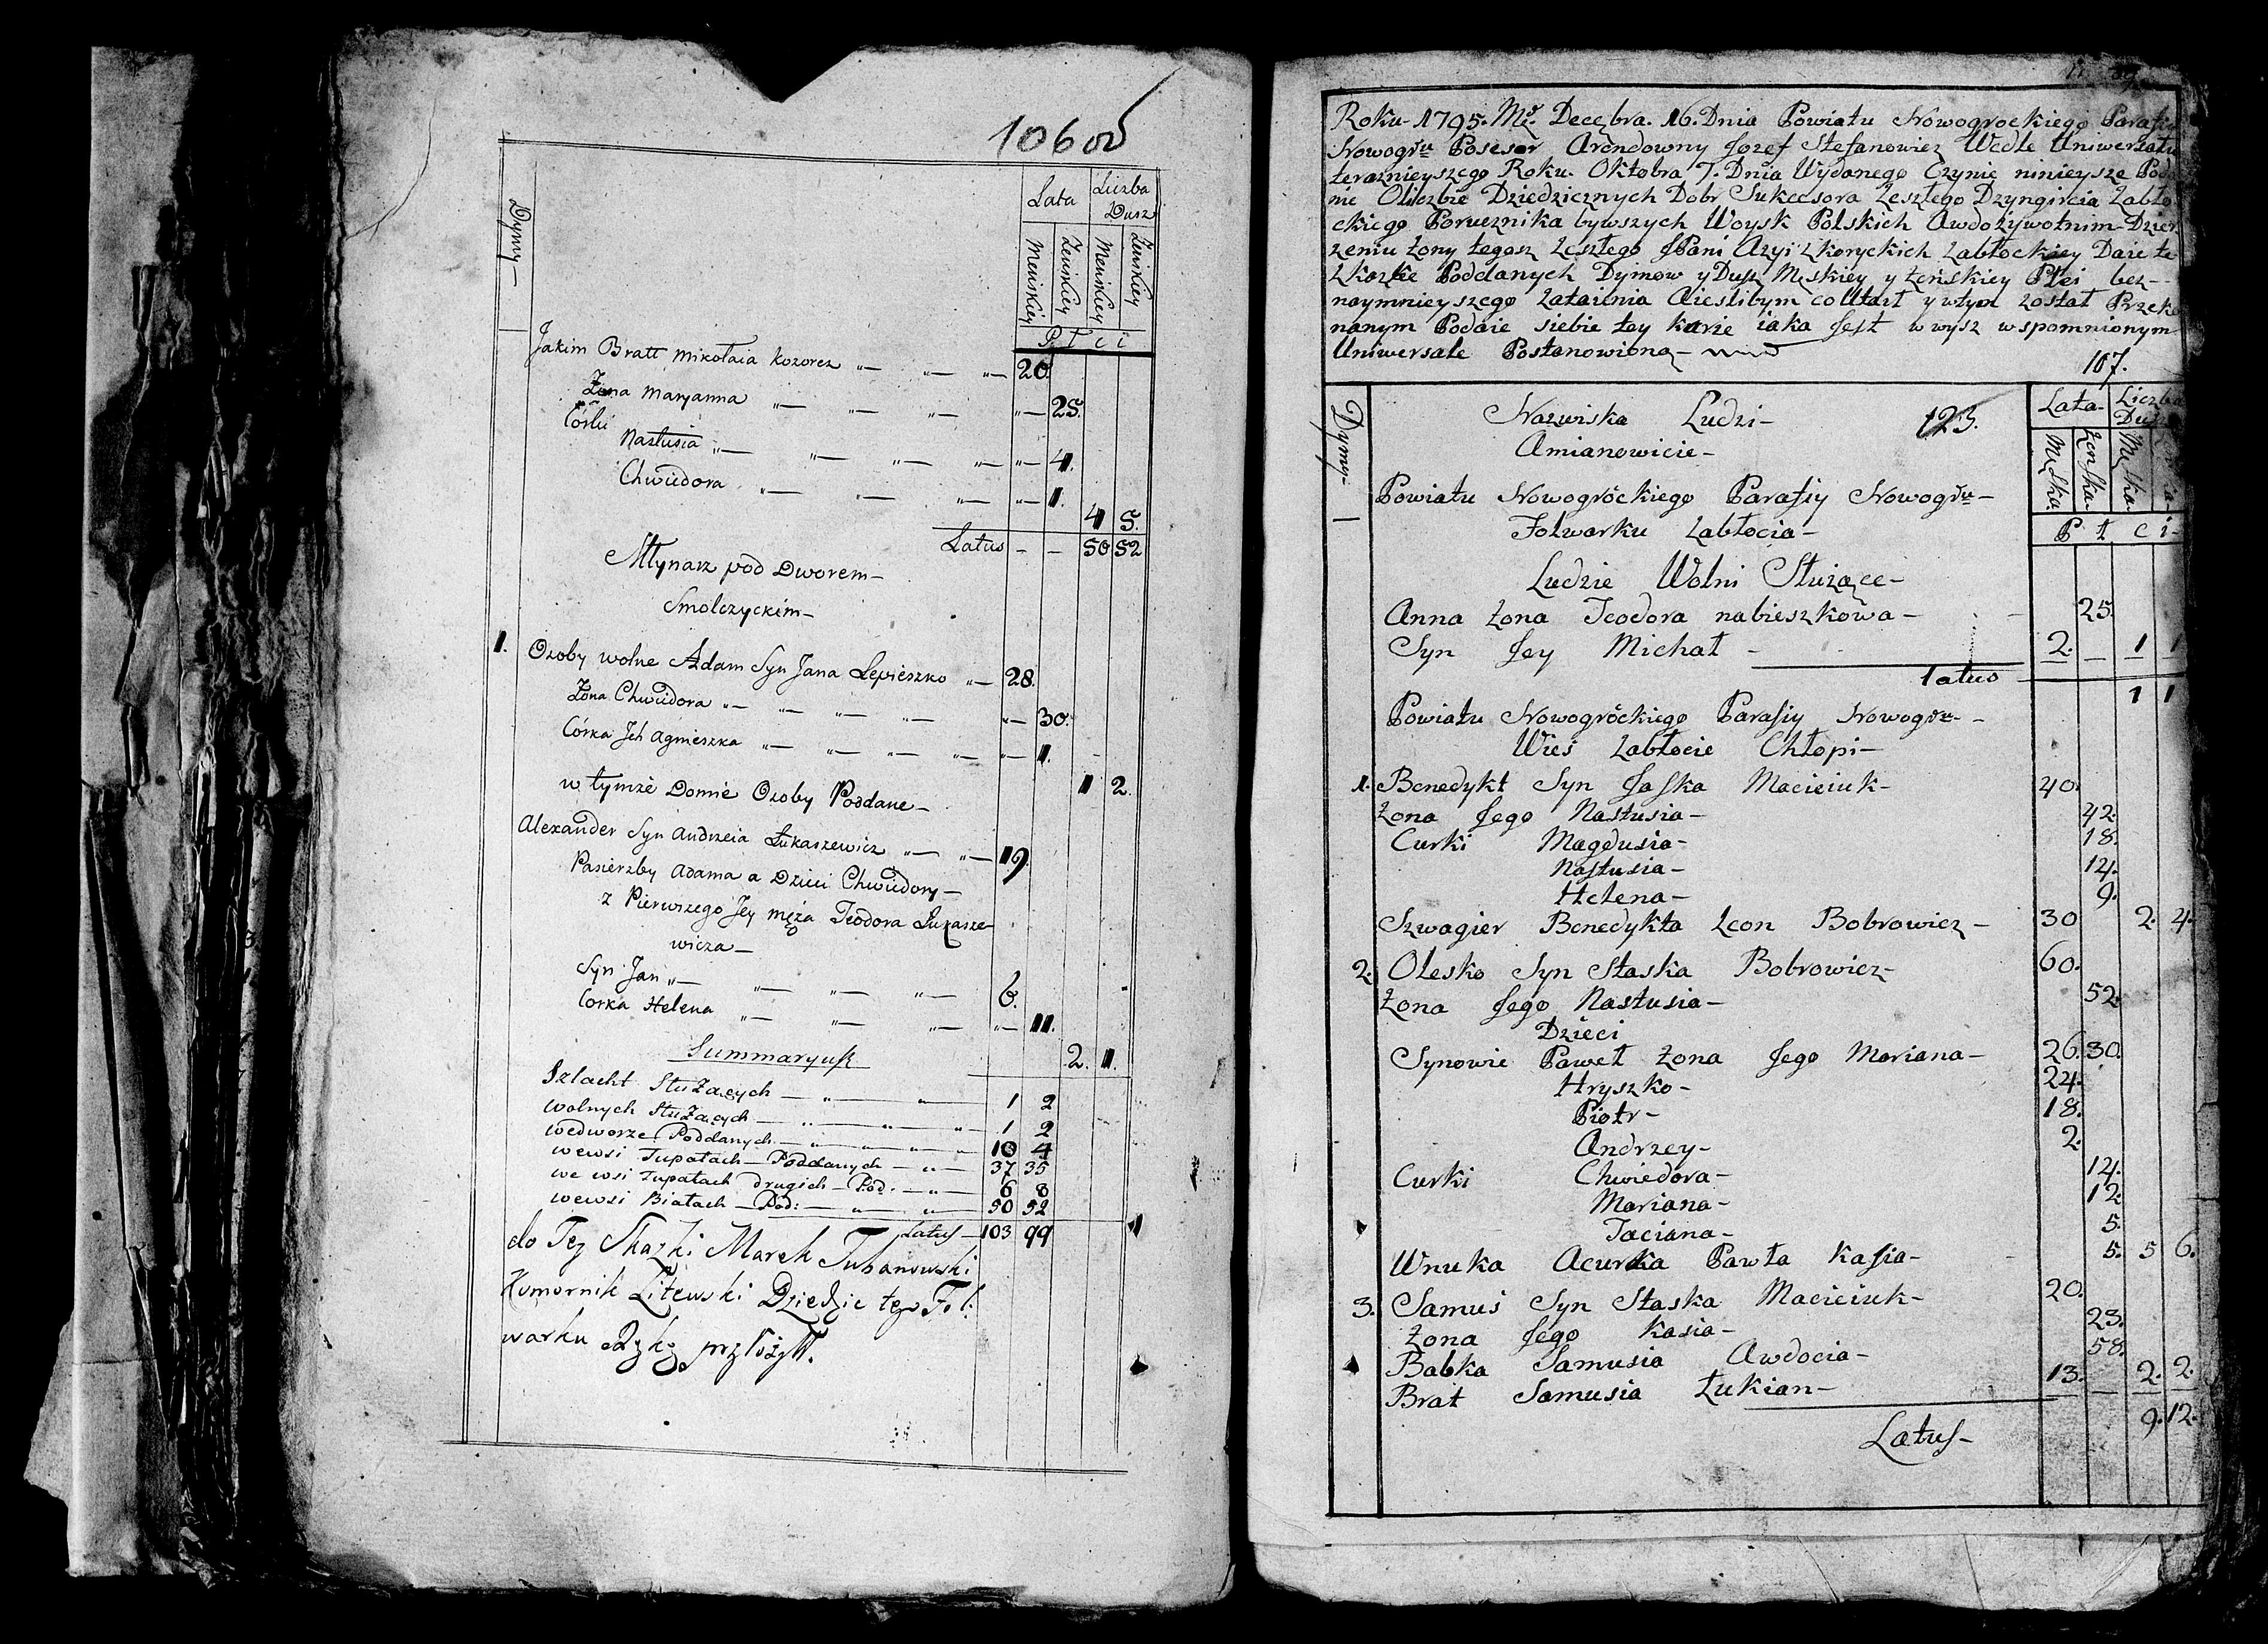 106 об
Dymy —
Lata Liczba Dusz
Menskiey Zenskiey Menskiey Zenskiey
P ł c i
Jakim Bratt Mikołaia Kozorez „— „— „— 20.
Żona Maryanna „— „— „— „— 25.
Córki
Nastusia „— „— „— „— „— 4.
Chwiedora „— „— „— „— 1.
4 5.
Latus — — 50 52
Młynarz pod Dworem —
Smolczyckim —
1. Osoby wolne Adam Syn Jana Lepieszko „— 28.
Żona Chwiedora „— „— „— „— „— 30.
Córka Jch Agnieszka „— „— „— „— „— 1.
1 2.
w tymże Domie Osoby Poddane —
Alexander Syn Andrzeia Łukaszewicz „— „— 19.
Pasierzby Adama a Dzieci Chwiedory —
z Pierwszego Jey męża Teodora Łukasze-
wicza —
Syn Jan „— „— „— „— 6.
Corka Helena „— „— „— „— 11.
2. 1.
Summaryusz
Szlacht Służących — „— „— 1 2
Wolnych Służących — „— „— „— 1 2
wedworze Poddanych — „— „— „— 10 4
wewsi Tupałach — Poddanych — „— 37 35
we wsi Tupałach drugich — Pod: — „— 6 8
wewsi Białach — Pod: — „— „— 50 52
Latus — 103 99
do Tey Skazki Marek Tuhanowski
Komornik Litewski Dziedzic tego Fol:
warku Rękę przyłożył.
Roku 1795. Mca Decębra. 16. Dnia Powiatu Nowogrockiego Parafiy
Nowogru Posesor Arendowny Jozef Stefanowicz Wedle Uniwersału
teraznieyszego Roku. Oktobra 7. Dnia Wydanego Czynię ninieysze Poda
nie Oliczbie Dziedzicznych Dobr Sukcesora Zeszłego Dzyngircia Zabło
ckiego Porucznika bywszych Woysk Polskich Awdożywotnim Dzier
zeniu żony tegosz Zeszłego JPani Azyi Zkoryckich Zabłockiey Daie te
Zkazkę Poddanych Dymow y Dusz Męskiey y Zeńskiey Płci bez-
naymnieyszego Zataienia Aieslibym co Utaił y wtym został Przeko
nanym Podaie siebie tey karze iaka Jest w wysz wspomnionym
Uniwersale Postanowiona —
107.
Dymy —
Nazwiska Ludzi — 123.
Amianowicie —
Lata — Liczba Dusz
Męska. Zenska. Męska.
P ł c i —
Powiatu Nowogróckiego Parafiy Nowogru —
Folwarku Zabłocia —
Ludzie Wolni Służące —
Anna żona Teodora nabieszkowa — 25.
Syn Jey Michał — 2. — 1 1
Latus — 1 1
Powiatu Nowogróckiego Parafiy Nowogru —
Wieś Zabłocie Chłopi —
1. Benedykt Syn Jaska Macieiuk — 40.
Żona Jego Nastusia — 42.
Curki Magdusia — 18.
Nastusia — 14.
Helena — 9.
Szwagier Benedykta Leon Bobrowicz — 30 2. 4.
2. Olesko Syn Staska Bobrowicz — 60.
Żona Jego Nastusia — 52.
Dzieci
Synowie Paweł żona Jego Mariana — 26. 30.
Hryszko — 24.
Piotr — 18.
Andrzey — 2.
Curki Chwiedora — 14.
Mariana — 12.
Taciana — 5.
Wnuka Acurka Pawła Kasia — 5. 5 6.
3. Samuś Syn Staska Macieiuk — 20.
Żona Jego Kasia — 23.
Babka Samusia Awdocia — 58.
Brat Samusia Łukian — 13. — 2. 2.
Latus — 9. 12.